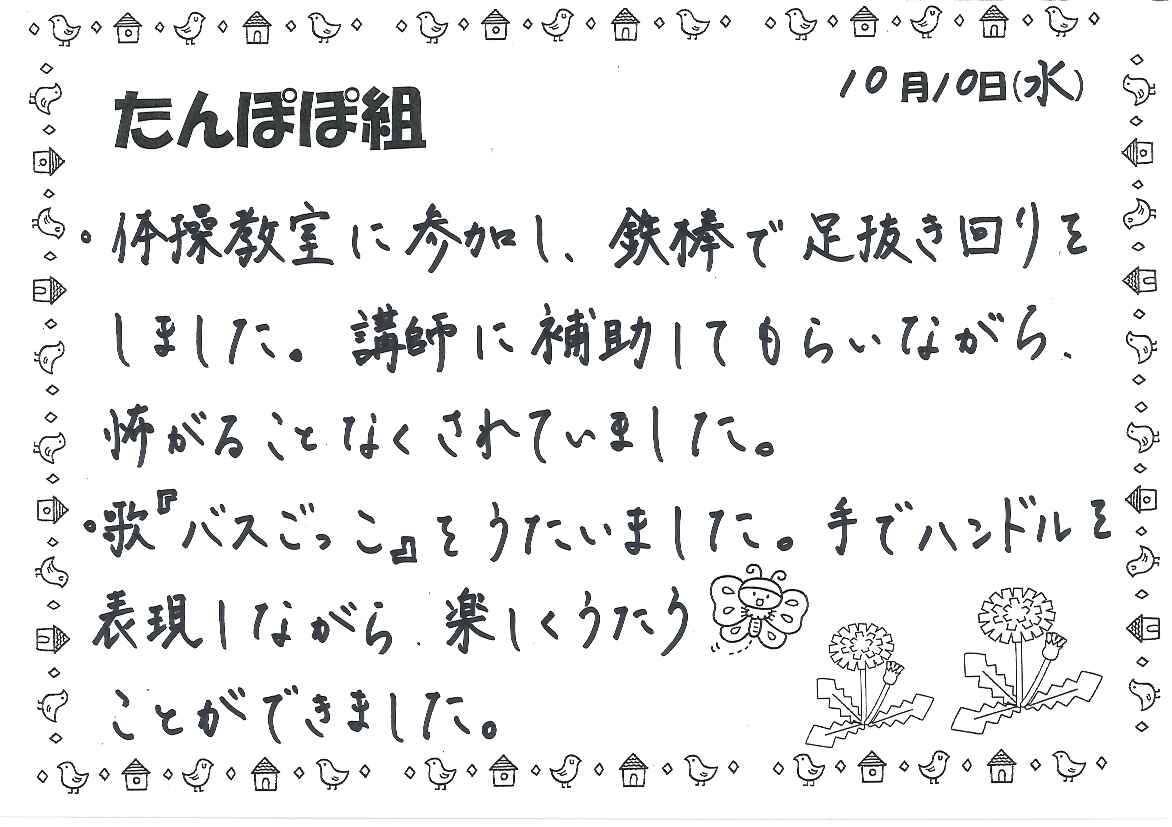 10月10日(水)
たんぽぽ組
・体操教室に参加し、鉄棒で足抜き回りを
しました。講師に補助してもらいながら、
怖がることなくされていました。
・歌『バスごっこ』をうたいました。手でハンドルを
表現しながら、楽しくうたう
ことができました。